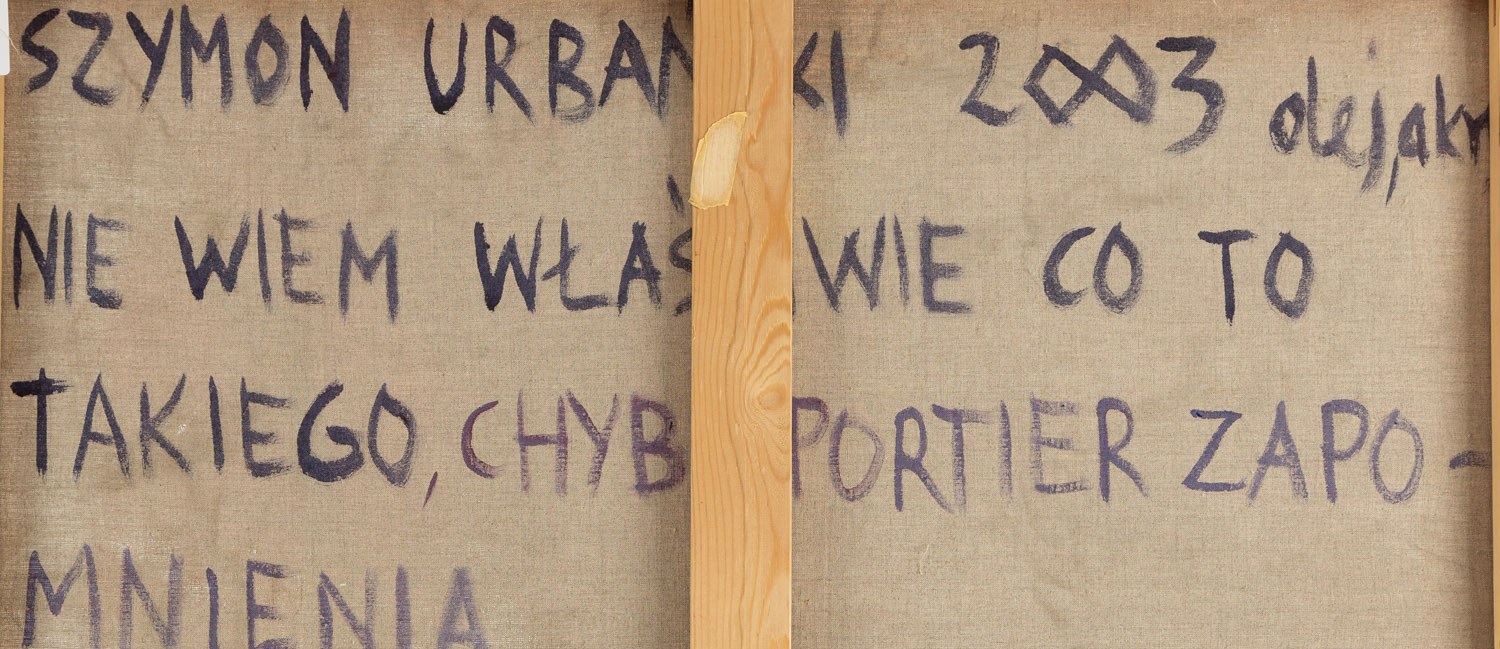 SZYMON URBAN KI 2003 olej, akr
NIE WIEM WŁAŚ WIE CO TO
TAKIEGO, CHYB PORTIER ZAPO-
MNIENIA